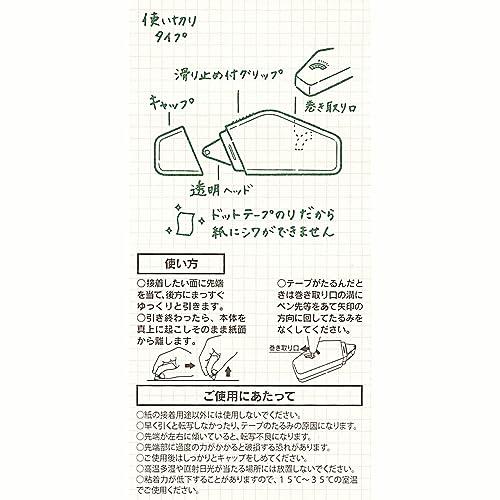 使い切り
タイプ
滑り止め付グリップ
キャップ
巻き取り口
透明ヘッド
ドットテープのりだから
紙にシワができません
使い方
○接着したい面に先端
を当て、後方にまっすぐ
ゆっくりと引きます。
○引き終わったら、本体を
真上に起こしそのまま紙面
から離します。
○テープがたるんだと
きは巻き取り口の溝に
ペン先等をあて矢印の
方向に回してたるみを
なくしてください。
巻き取り口
ご使用にあたって
○紙の接着用途以外には使用しないでください。
○早く引くと転写しなかったり、テープのたるみの原因になります。
○先端が左右に傾いていると、転写不良になります。
○先端部に過度の力がかかると破損する恐れがあります。
○ご使用後はしっかりとキャップをしめてください。
○高温多湿や直射日光が当たる場所には放置しないでください。
○粘着力が低下することがありますので、15℃～35℃の室温
でご使用ください。